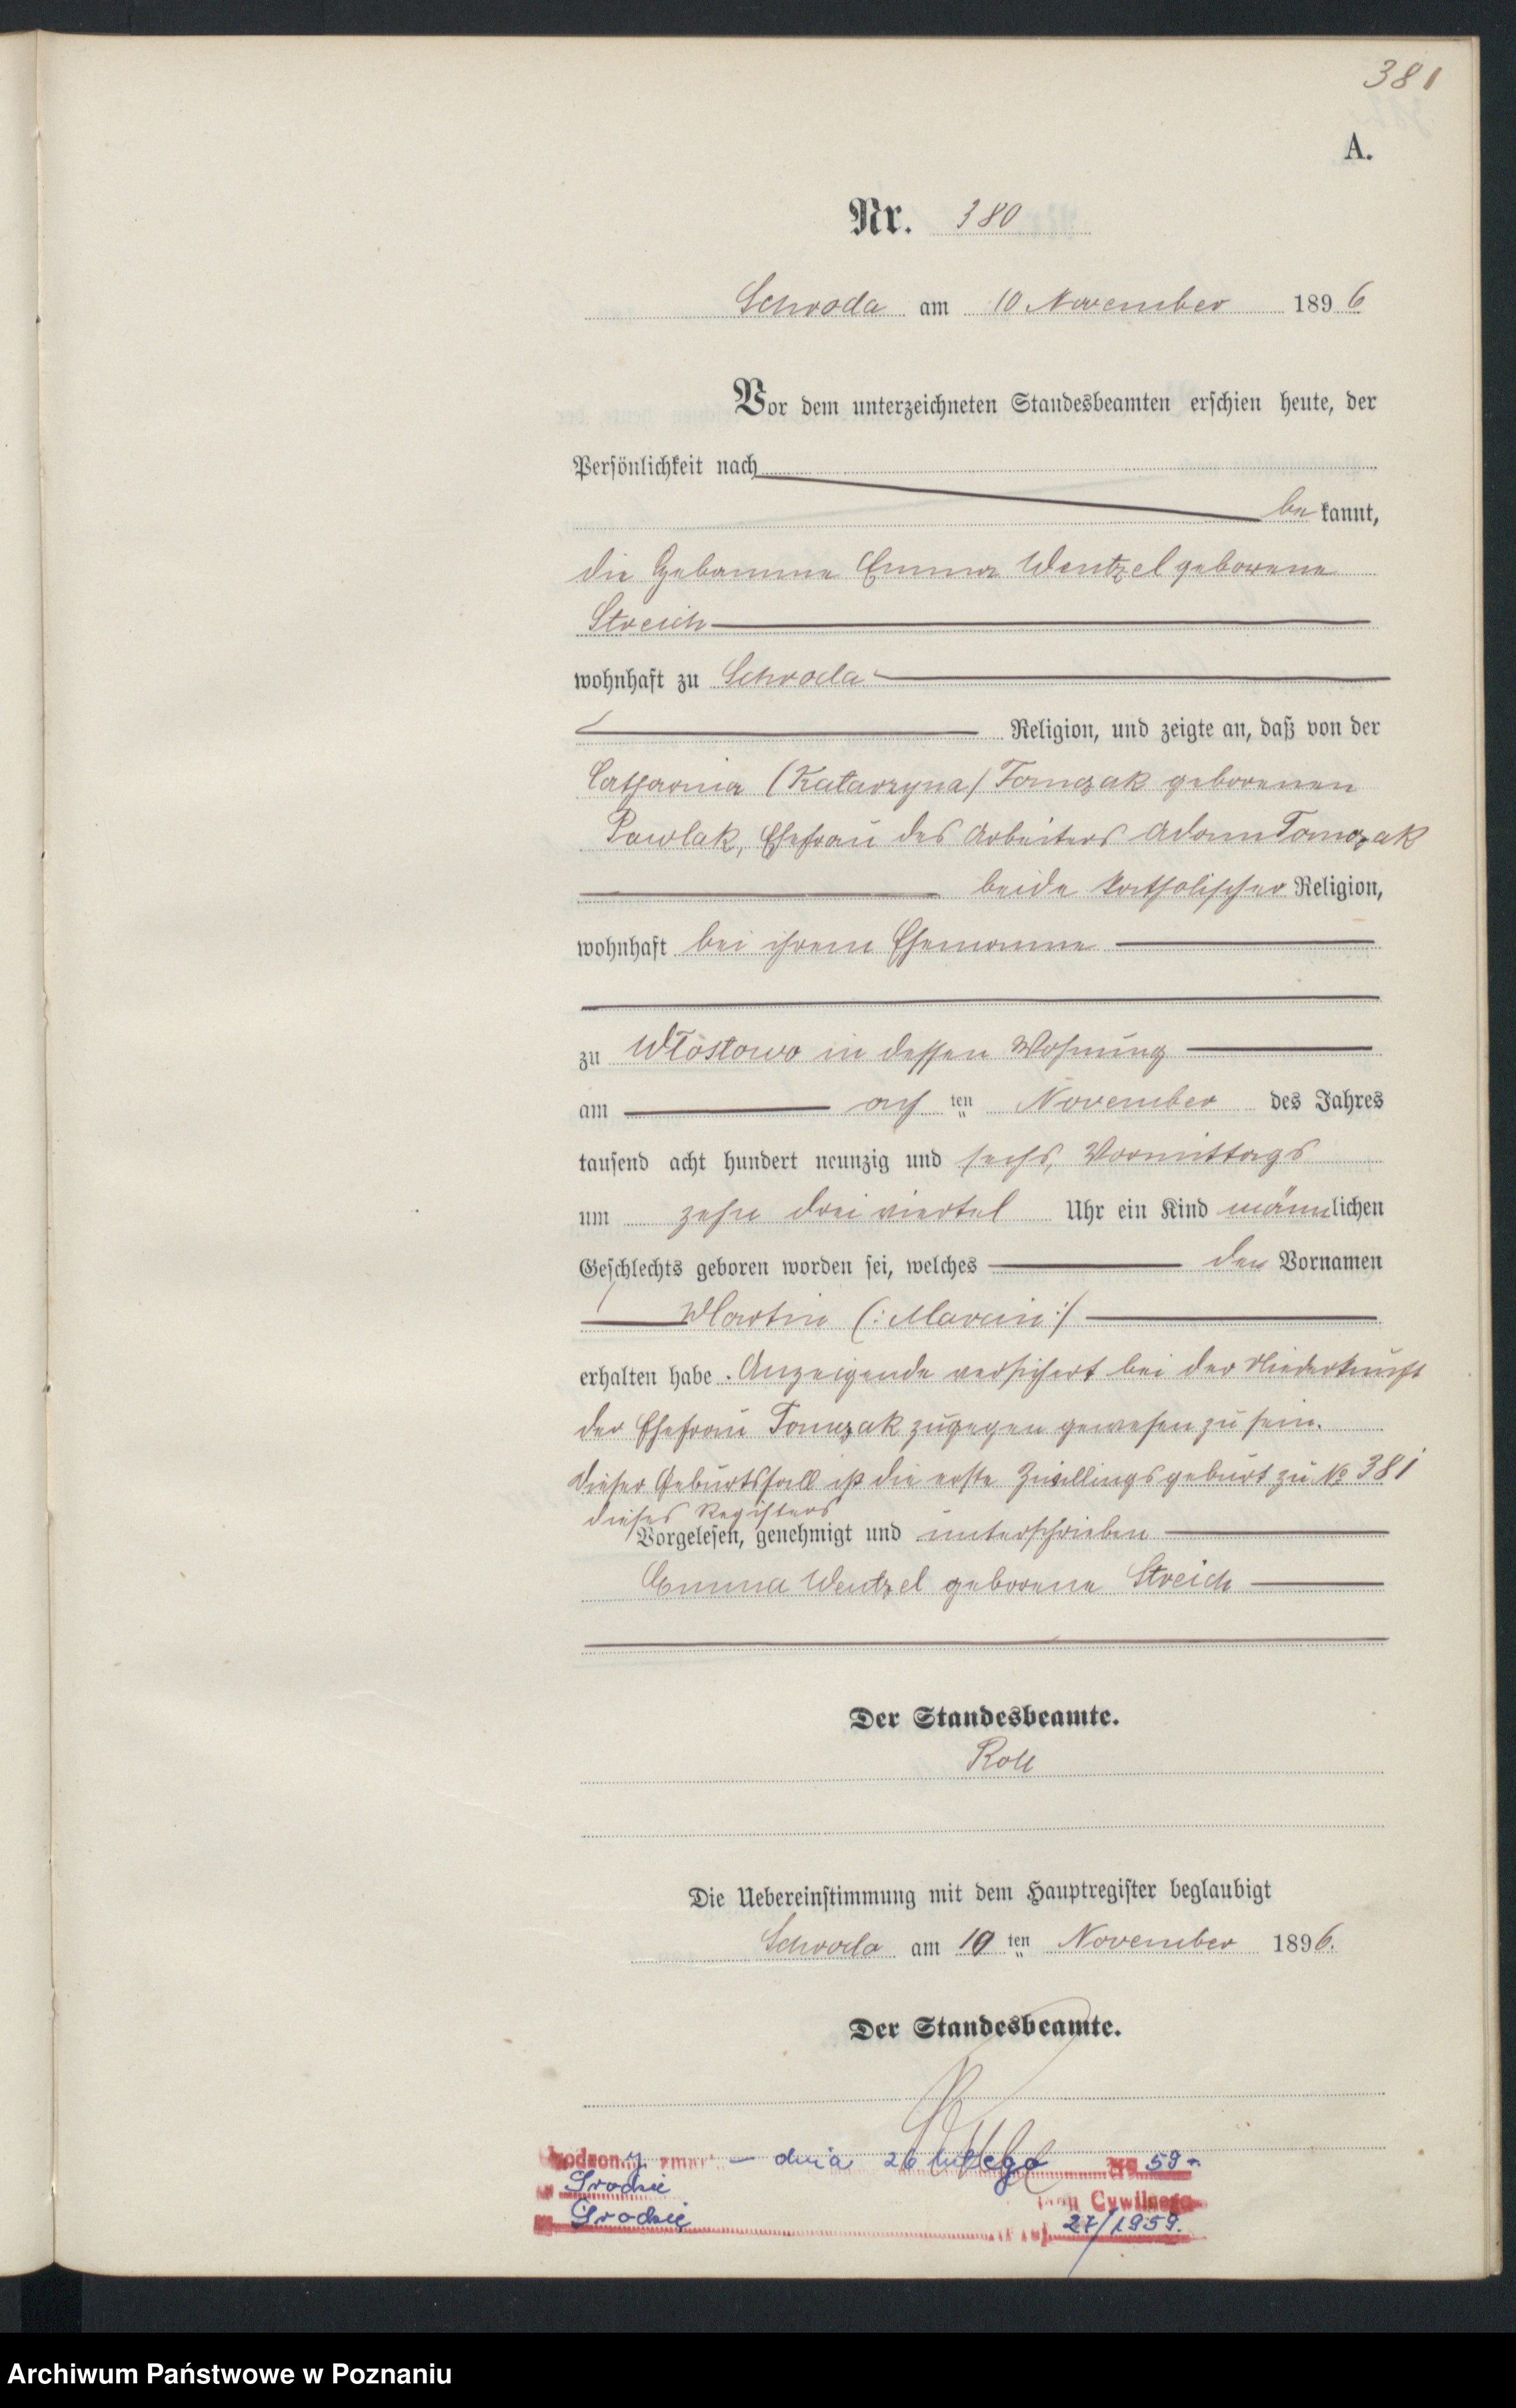 381
A.
Nr. 380
Schroda am 10 November 1896
Vor dem unterzeichneten Standesbeamten erschien heute, der
Persönlichkeit nach
bekannt,
die Hebamme Emma Wentzel geborene
Streich
wohnhaft zu Schroda
Religion, und zeigte an, daß von der
Catharina (Katarzyna) Tomczak geborenen
Pawlak, Ehefrau des Arbeiters Adam Tomczak
beide katholischer Religion,
wohnhaft bei ihrem Ehemanne
zu Włostowo in dessen Wohnung
am acht ten November des Jahres
tausend acht hundert neunzig und sechs, Vormittags
um zehn drei viertel Uhr ein Kind männlichen
Geschlechts geboren worden sei, welches den Vornamen
Martin (: Marcin :)
erhalten habe. Anzeigende versichert bei der Niederkunft
der Ehefrau Tomczak zugegen gewesen zu sein.
Dieser Geburtsfall ist die erste Zwillingsgeburt zu No 381
dieses Registers
Vorgelesen, genehmigt und unterschrieben
Emma Wentzel geborene Streich
Der Standesbeamte.
Roll
Die Uebereinstimmung mit dem Hauptregister beglaubigt
Schroda am 10 ten November 1896.
Der Standesbeamte.
dnia 26 lutego 1959 r.
Grodzie
Cywilnego
Grodzie 27/1959.
Archiwum Państwowe w Poznaniu